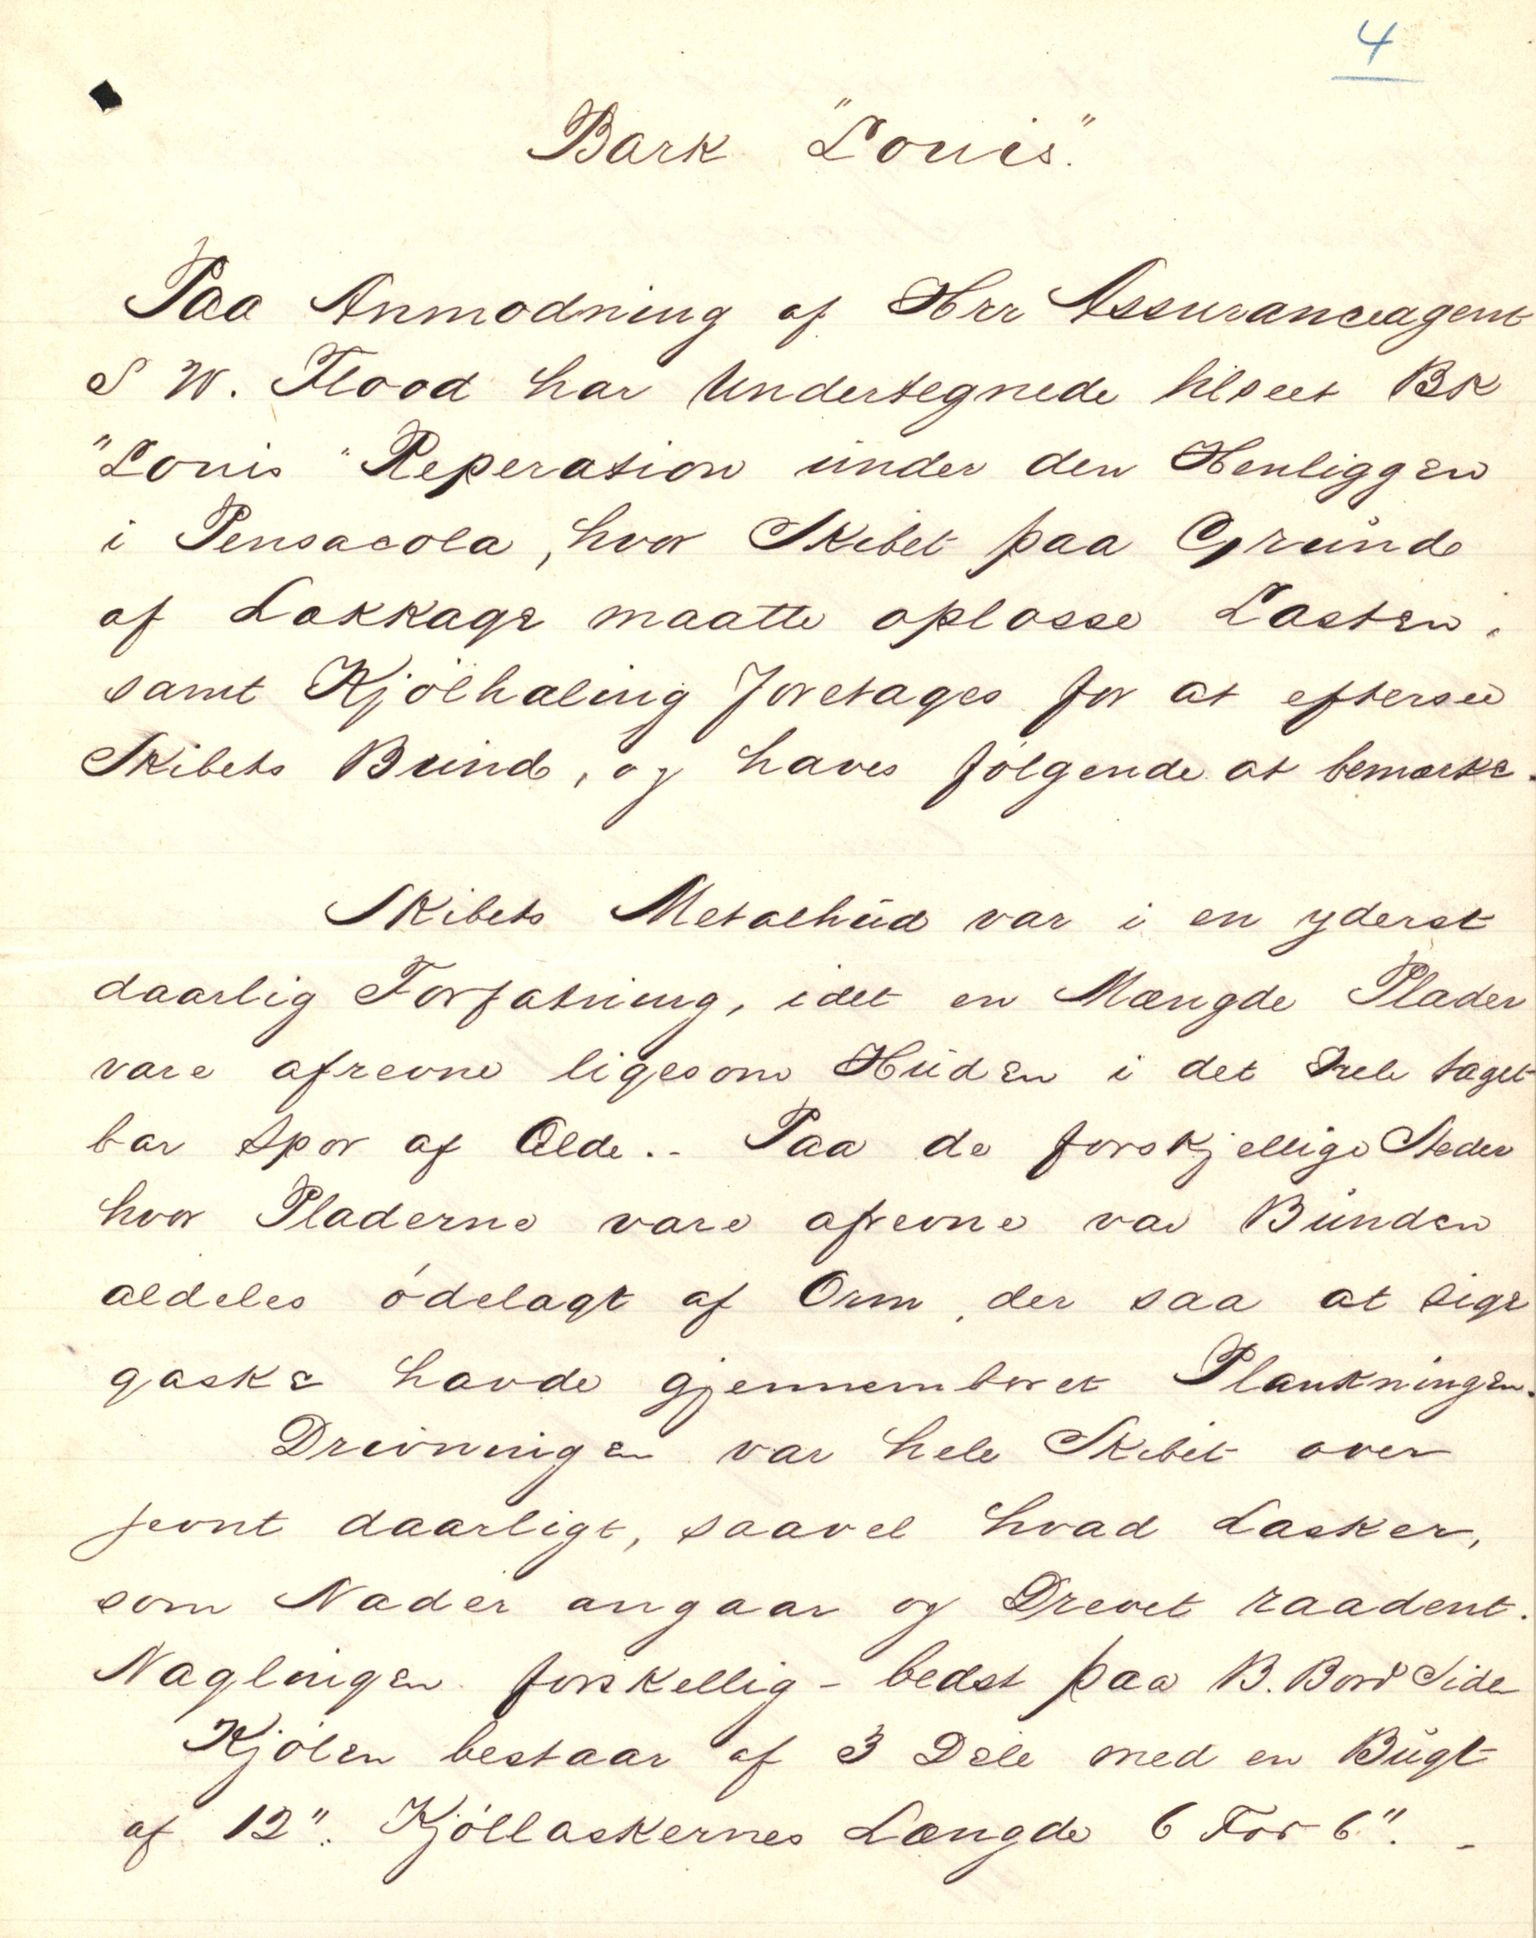 4
Bark "Louis".
Paa Anmodning af Hrr Assuranceagent
S W. Flood har Undertegnede tilseet Bk
"Louis" Reperation under den Henliggen
i Pensacola, hvor Skibet paa Grund
af Lækkage maatte oplosse Lasten,
samt Kjølhaling foretages for at eftersee
Skibets Bund, og haves følgende at bemærke.
Skibets Metalhud var i en yderst
daarlig Forfatning, idet en Mængde Plader
vare afrevne ligesom Huden i det Hele taget
bar Spor af Ælde.. Paa de forskjellige Steder
hvor Pladerne vare afrevne var Bunden
aldeles ødelagt af Orm, der saa at sige
gaske havde gjennemboret Plankningen.
Drivningen var hele Skibet over
jevnt daarligt, saavel hvad Lasker,
som Nader angaar og Drevet raadent.
Naglingen forskellig - bedst paa B. Bord Side
Kjølen bestaar af 3 Dele med en Bugt
af 12". Kjøllaskernes Længde 6 Fod 6". -